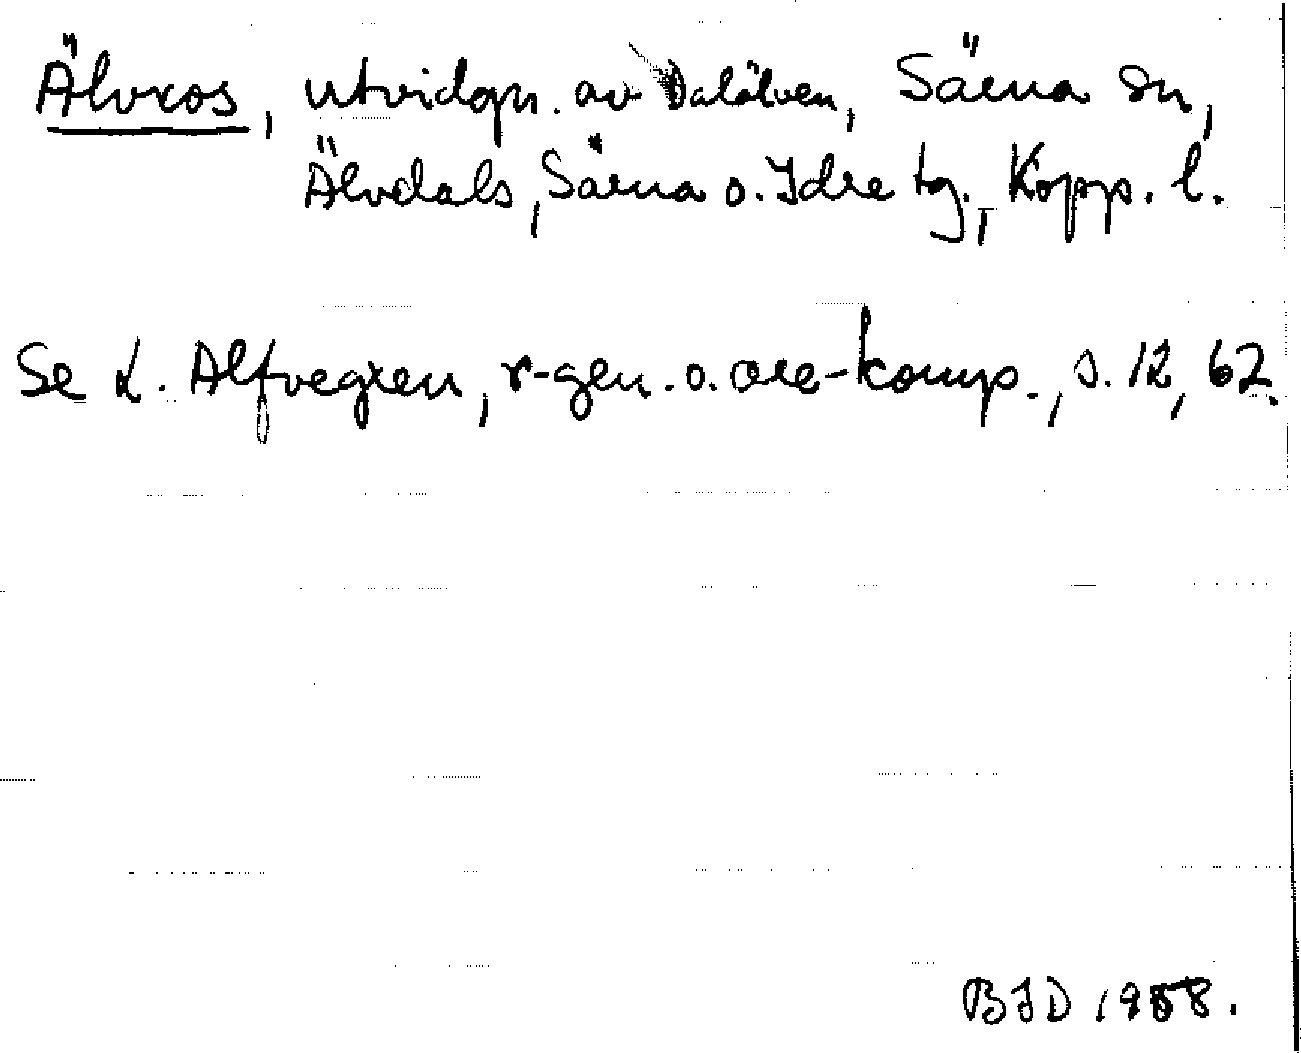 Älvros, utvidgn. av Dalälven, Särna sn,
Älvdals, Särna o. Idre tg., Kopp. l.
Se L. Alfvegren, r-gen. o. are-komp., s. 12, 62.
BJD 1958.